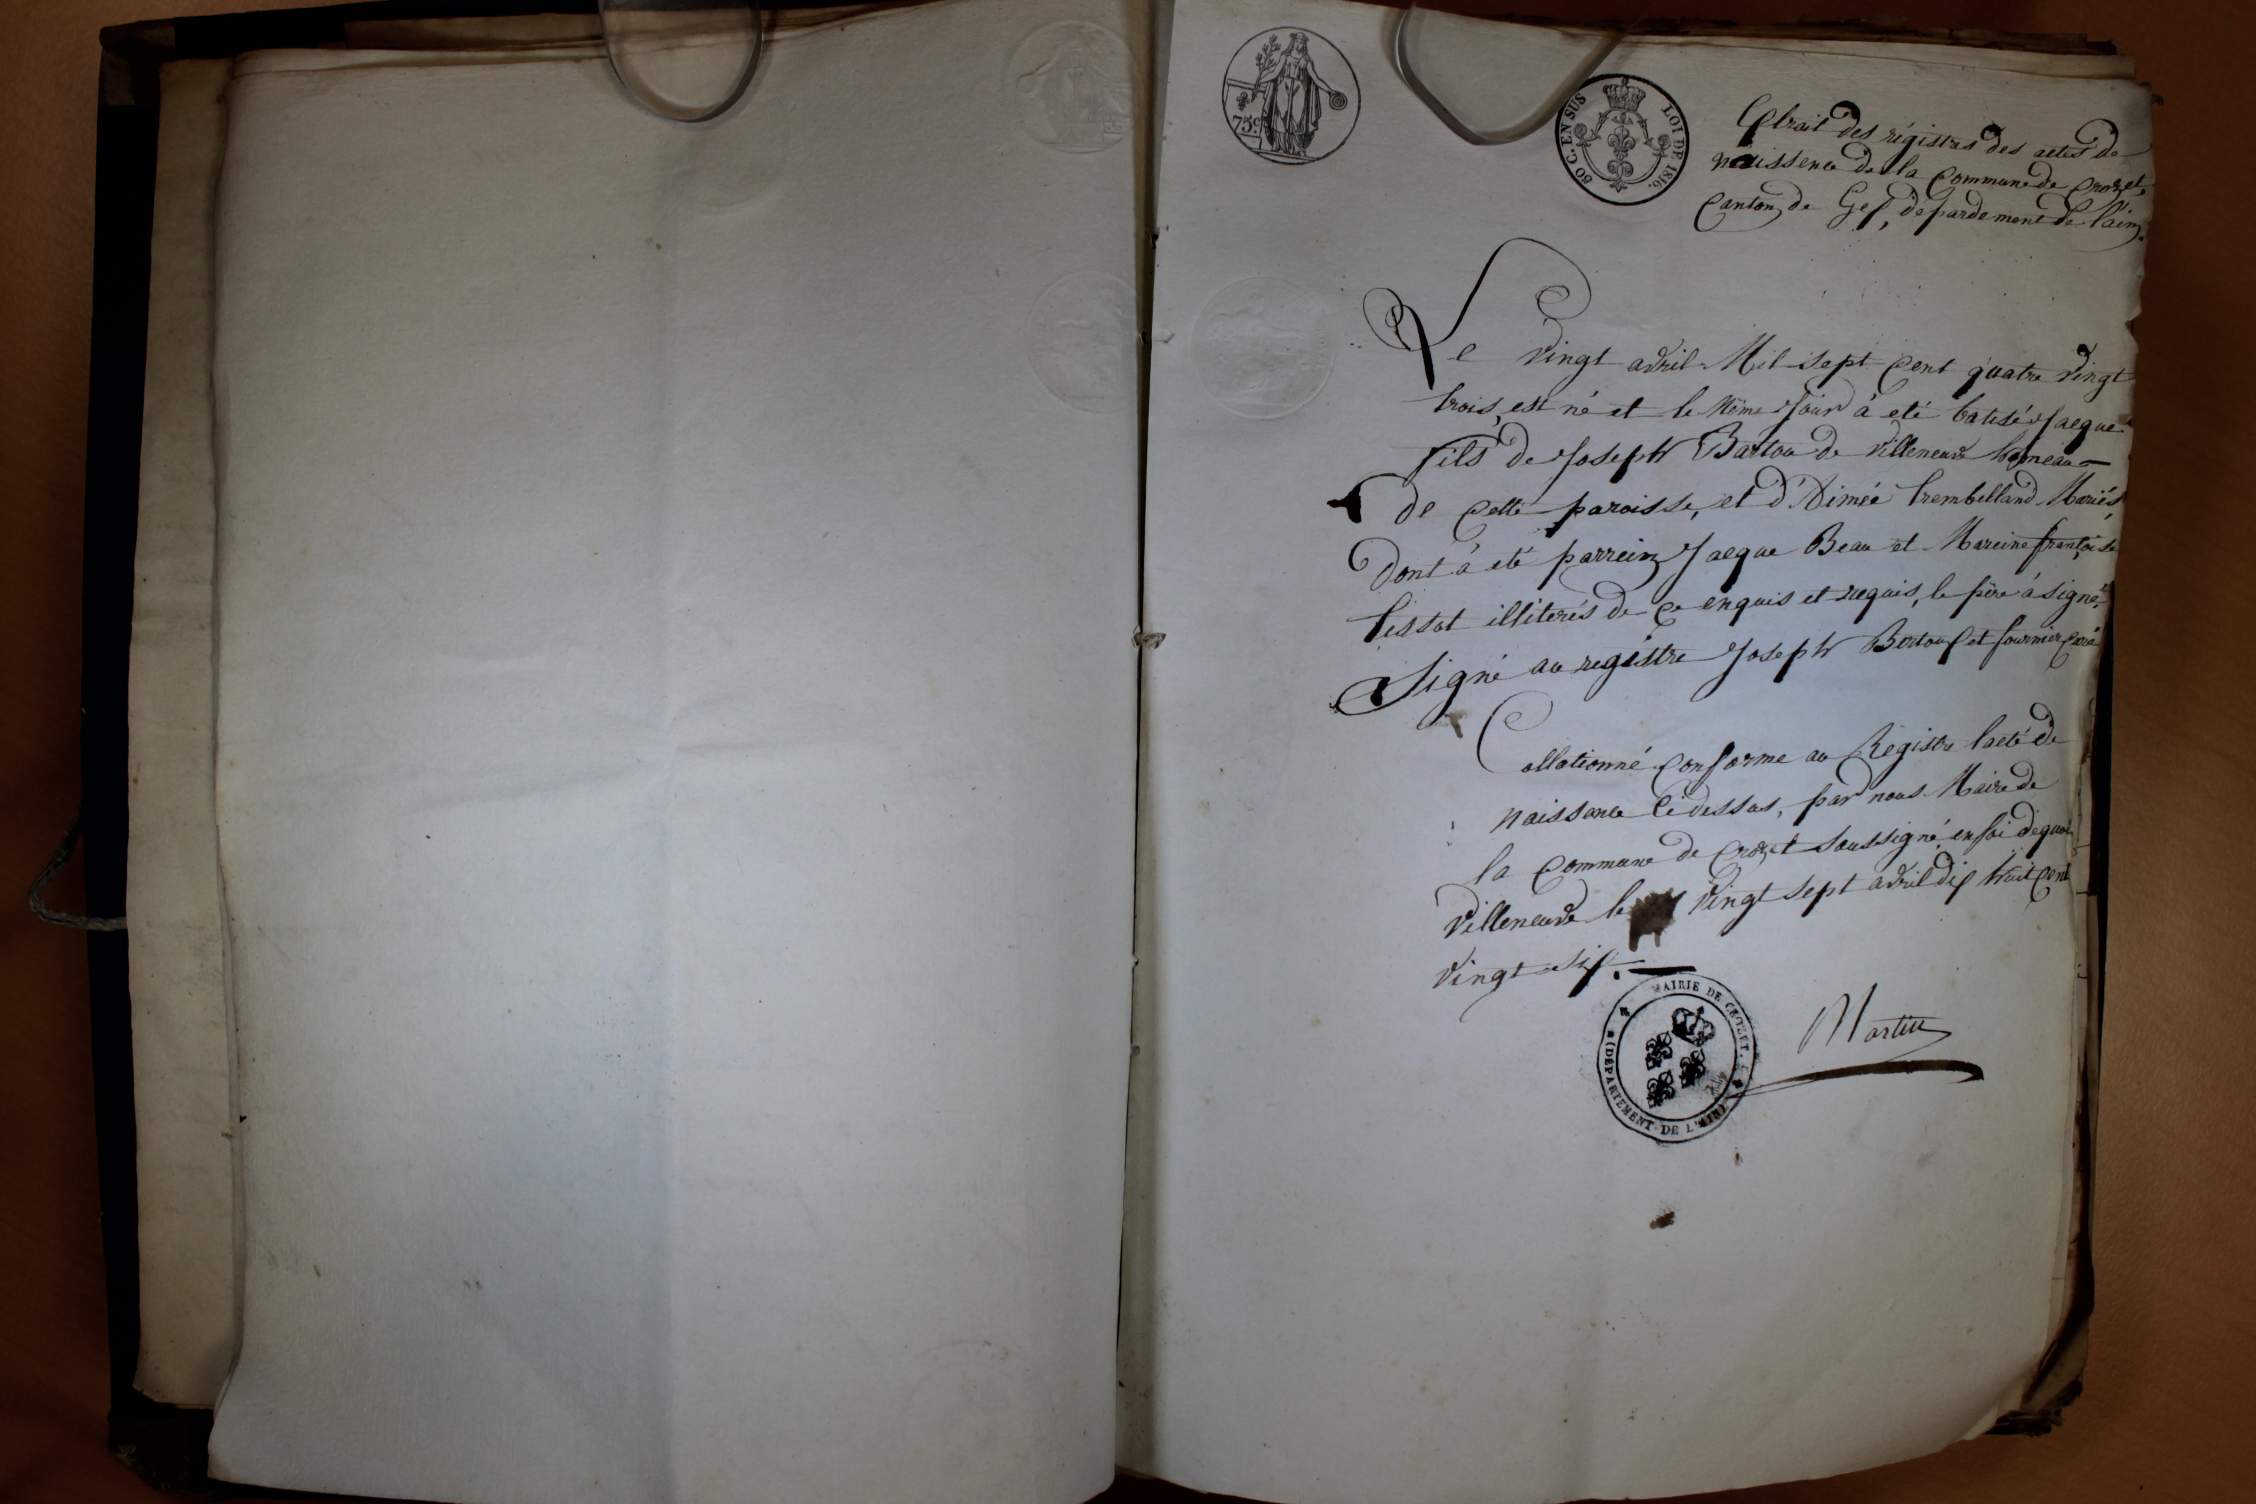 75c.
50 C. EN SUS LOI DE 1816.
Extrait des régistres des actes de
naissence de la Commune de Crozet,
Canton de Gex, departement de l'ain.
Le vingt avril Mil sept Cent quatre vingt
trois, est né et le même Jour à eté batisé Jacque
fils de Joseph Bartou de villeneuve hameau
de Cette paroisse, et d'Aimée trembelland Mariés,
Dont à eté parrein Jacque Beau et Mareine françoise
tissot illiterés de Ce enquis et requis, le père à signé.
Signé au registre Joseph Bertoux et fournier Curé
Collationné Conforme au Registre l'acte de
naissance Cidessus, par nous Maire de
la Commune de Crozet soussigné, en foi de quoi
villeneuve le vingt sept avril dix huit Cent
vingt six.
MAIRIE DE CROZET.
(DÉPARTEMENT DE L'AIN)
Martin